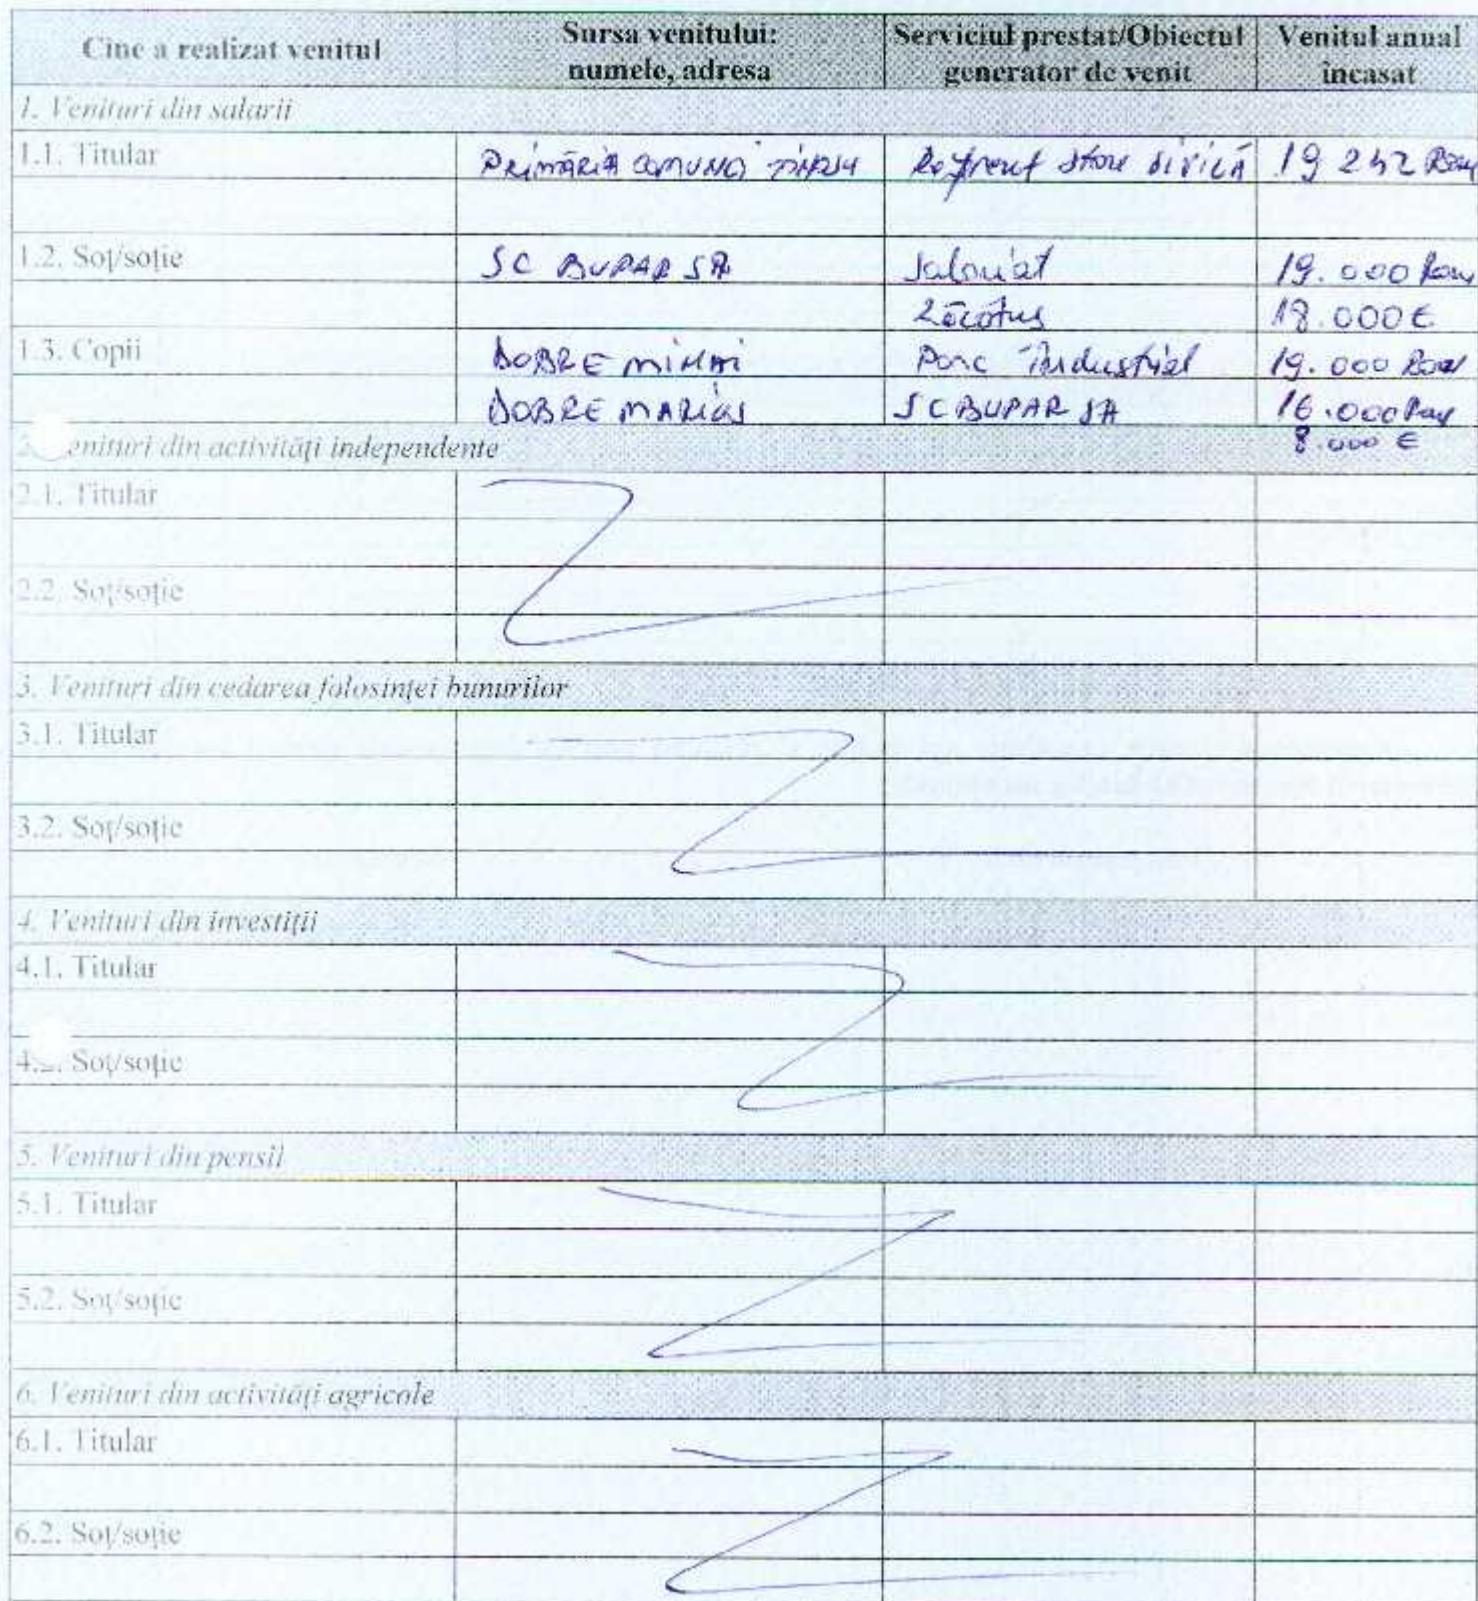 Cine a realizat venitul Sursa venitului: numele, adresa Serviciul prestat/Obiectul generator de venit Venitul anual încasat
1. Venituri din salarii
1.1. Titular Primăria 19 242 Ron
1.2. Soț/soție SC BUPAR SA Salariat 19.000 Ron
18.000 €
1.3. Copii DOBRE MIHAI Parc Industrial 19.000 Ron
DOBRE MARIUS SC BUPAR SA 16.000 Ron
8.000 €
enituri din activități independente
2.1. Titular
2.2. Soț/soție
3. Venituri din cedarea folosinței bunurilor
3.1. Titular
3.2. Soț/soție
4. Venituri din investiții
4.1. Titular
4.2. Soț/soție
5. Venituri din pensii
5.1. Titular
5.2. Soț/soție
6. Venituri din activități agricole
6.1. Titular
6.2. Soț/soție